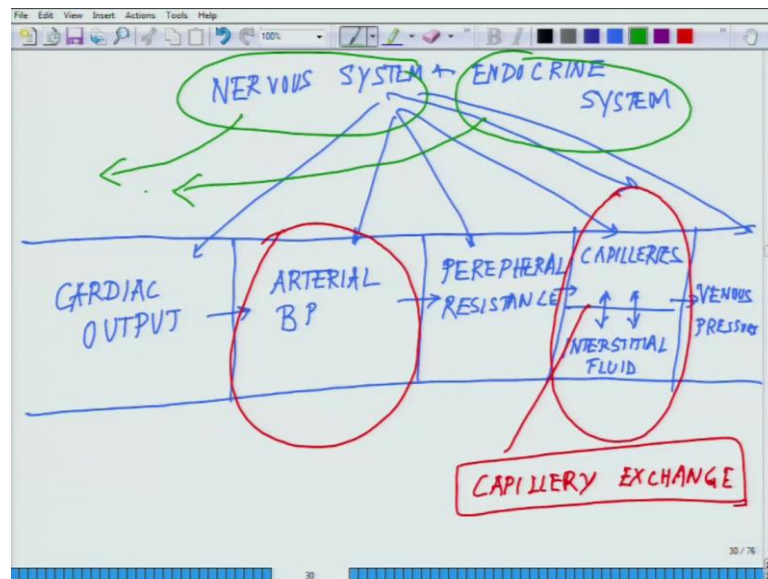 File Edit View Insert Actions Tools Help
100%
B I
NERVOUS SYSTEM + ENDOCRINE
SYSTEM
CARDIAC
OUTPUT
ARTERIAL
BP
PEREPHERAL
RESISTANCE
CAPILLERIES
INTERSTITIAL
FLUID
VENOUS
PRESSURE
CAPILLERY EXCHANGE
30 / 76
30